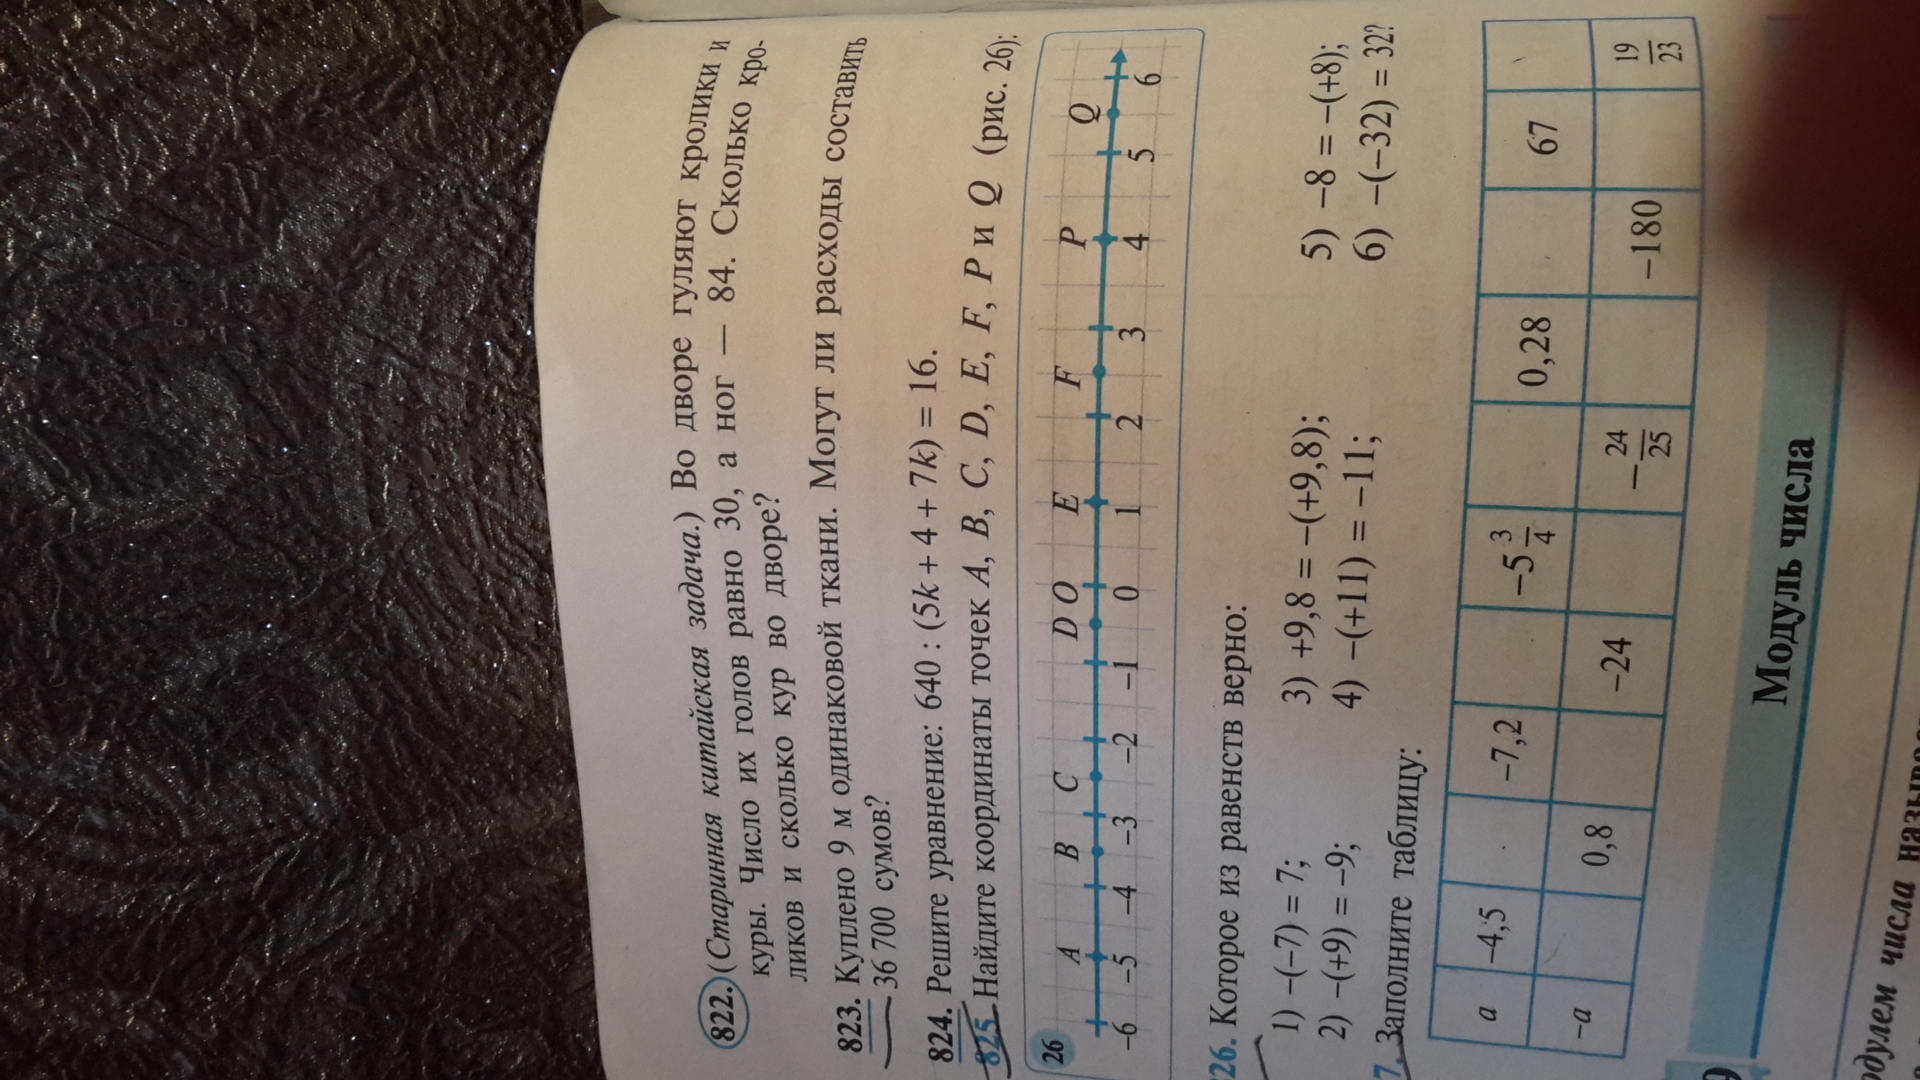 822. (Старинная китайская задача.) Во дворе гуляют кролики и
куры. Число их голов равно 30, а ног — 84. Сколько кро-
ликов и сколько кур во дворе?
823. Куплено 9 м одинаковой ткани. Могут ли расходы составить
36 700 сумов?
824. Решите уравнение: 640 : (5k + 4 + 7k) = 16.
825. Найдите координаты точек A, B, C, D, E, F, P и Q (рис. 26):
26
A B C D O E F P Q
−6 −5 −4 −3 −2 −1 0 1 2 3 4 5 6
26. Которое из равенств верно:
1) −(−7) = 7; 3) +9,8 = −(+9,8); 5) −8 = −(+8);
2) −(+9) = −9; 4) −(+11) = −11; 6) −(−32) = 32?
7. Заполните таблицу:
a −4,5 −7,2 −5 3/4 0,28 67
−a 0,8 −24 −24/25 −180 19/23
Модуль числа
числа